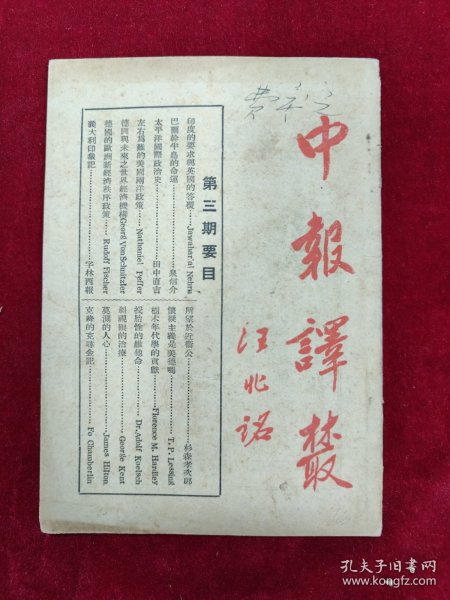 中報譯叢
汪兆銘
第三期要目
印度的要求與英國的答覆………Jawaharlal Nehru
巴爾幹半島的命運………泉信介
太平洋國際政治史………田中直吉
左右爲難的美國兩洋政策………Nathaniel Peffer
德國與未來之世界經濟機構Georg Von Schnitzler
德國的歐洲新經濟秩序政策………Rudolf Fischer
義大利印象記………字林西報
所望於近衛公………杉森孝次郎
懷疑主義是美德嗎………T. P. Lessing
樹木年代學的貢獻………Florence M. Hardley
投胎性的維他命………Dr. Adolf Koelsch
斜視眼的治療………George Kent
莫測的人心………James Hilton
克峰的克難金記………Fo Chamberlin
孔夫子旧书网
www.kongfz.com